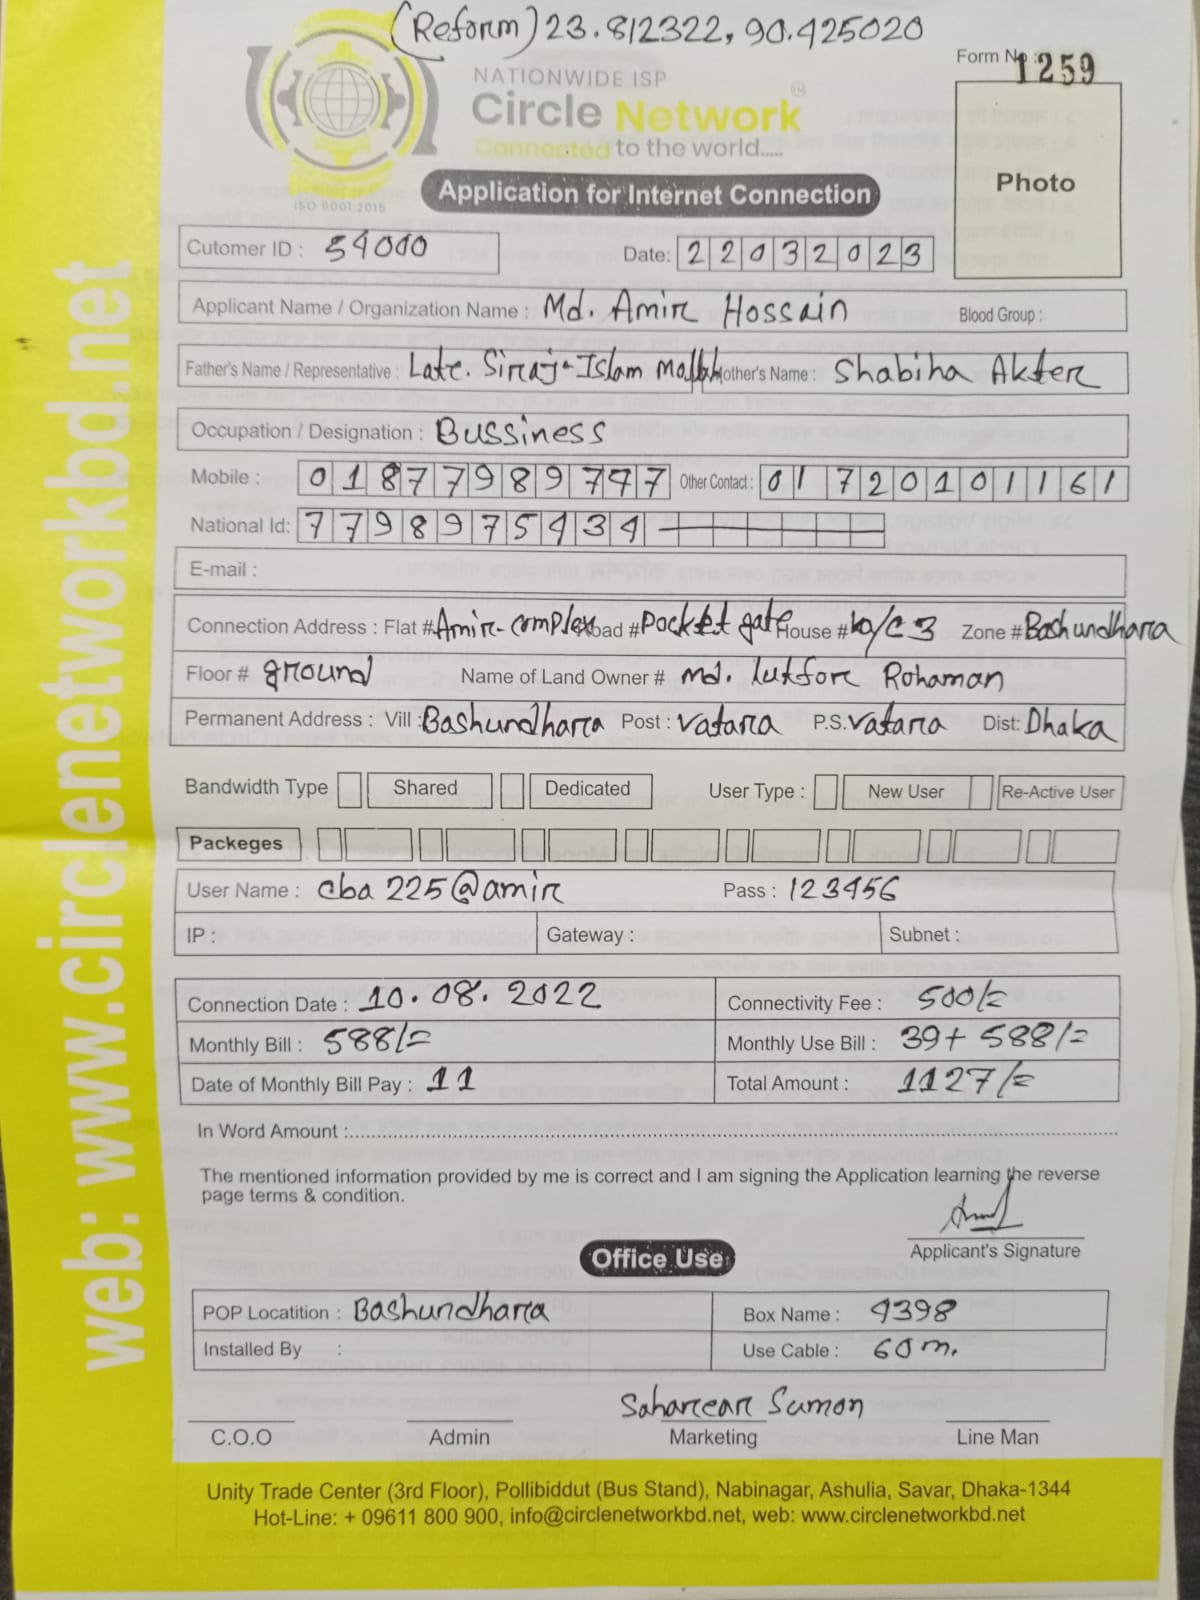 (Reform) 23.812322, 90.425020
Form No : 1259
NATIONWIDE ISP
Circle Network TM
Connected to the world.....
ISO 9001:2015
Application for Internet Connection
Photo
Cutomer ID : 54000 Date: 22032023
Applicant Name / Organization Name : Md. Amir Hossain Blood Group :
Father's Name / Representative : Late. Siraj-Islam Mollah Mother's Name : Shabiha Akter
Occupation / Designation : Bussiness
Mobile : 01877989777 Other Contact : 01720101161
National Id: 7798975434
E-mail :
Connection Address : Flat # Amir-complex Road # Pocket gate House # ka/c 3 Zone # Bashundhara
Floor # ground Name of Land Owner # Md. lutfor Rohaman
Permanent Address : Vill : Bashundhara Post : vatara P.S. vatara Dist: Dhaka
Bandwidth Type Shared Dedicated User Type : New User Re-Active User
Packeges
User Name : cba225@amir Pass : 123456
IP : Gateway : Subnet :
Connection Date : 10.08.2022 Connectivity Fee : 500/=
Monthly Bill : 588/= Monthly Use Bill : 39+ 588/=
Date of Monthly Bill Pay : 11 Total Amount : 1127/=
In Word Amount :
The mentioned information provided by me is correct and I am signing the Application learning the reverse
page terms & condition.
Applicant's Signature
Office Use
POP Locatition : Bashundhara Box Name : 4398
Installed By : Use Cable : 60 m.
Saharear Sumon
C.O.O Admin Marketing Line Man
Unity Trade Center (3rd Floor), Pollibiddut (Bus Stand), Nabinagar, Ashulia, Savar, Dhaka-1344
Hot-Line: + 09611 800 900, info@circlenetworkbd.net, web: www.circlenetworkbd.net
web: www.circlenetworkbd.net